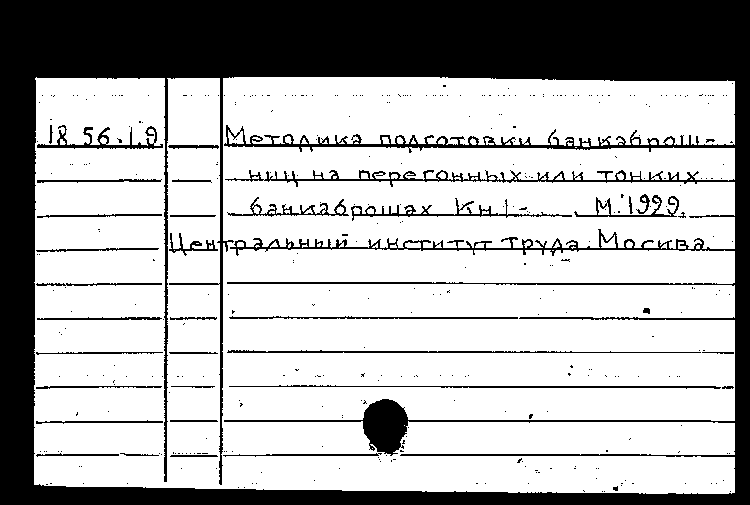 18.56.1.9. Методика подготовки банкаброш-
ниц на перегонных или тонких
банкаброшах Кн. 1 - . М. 1929.
Центральный институт труда. Москва.